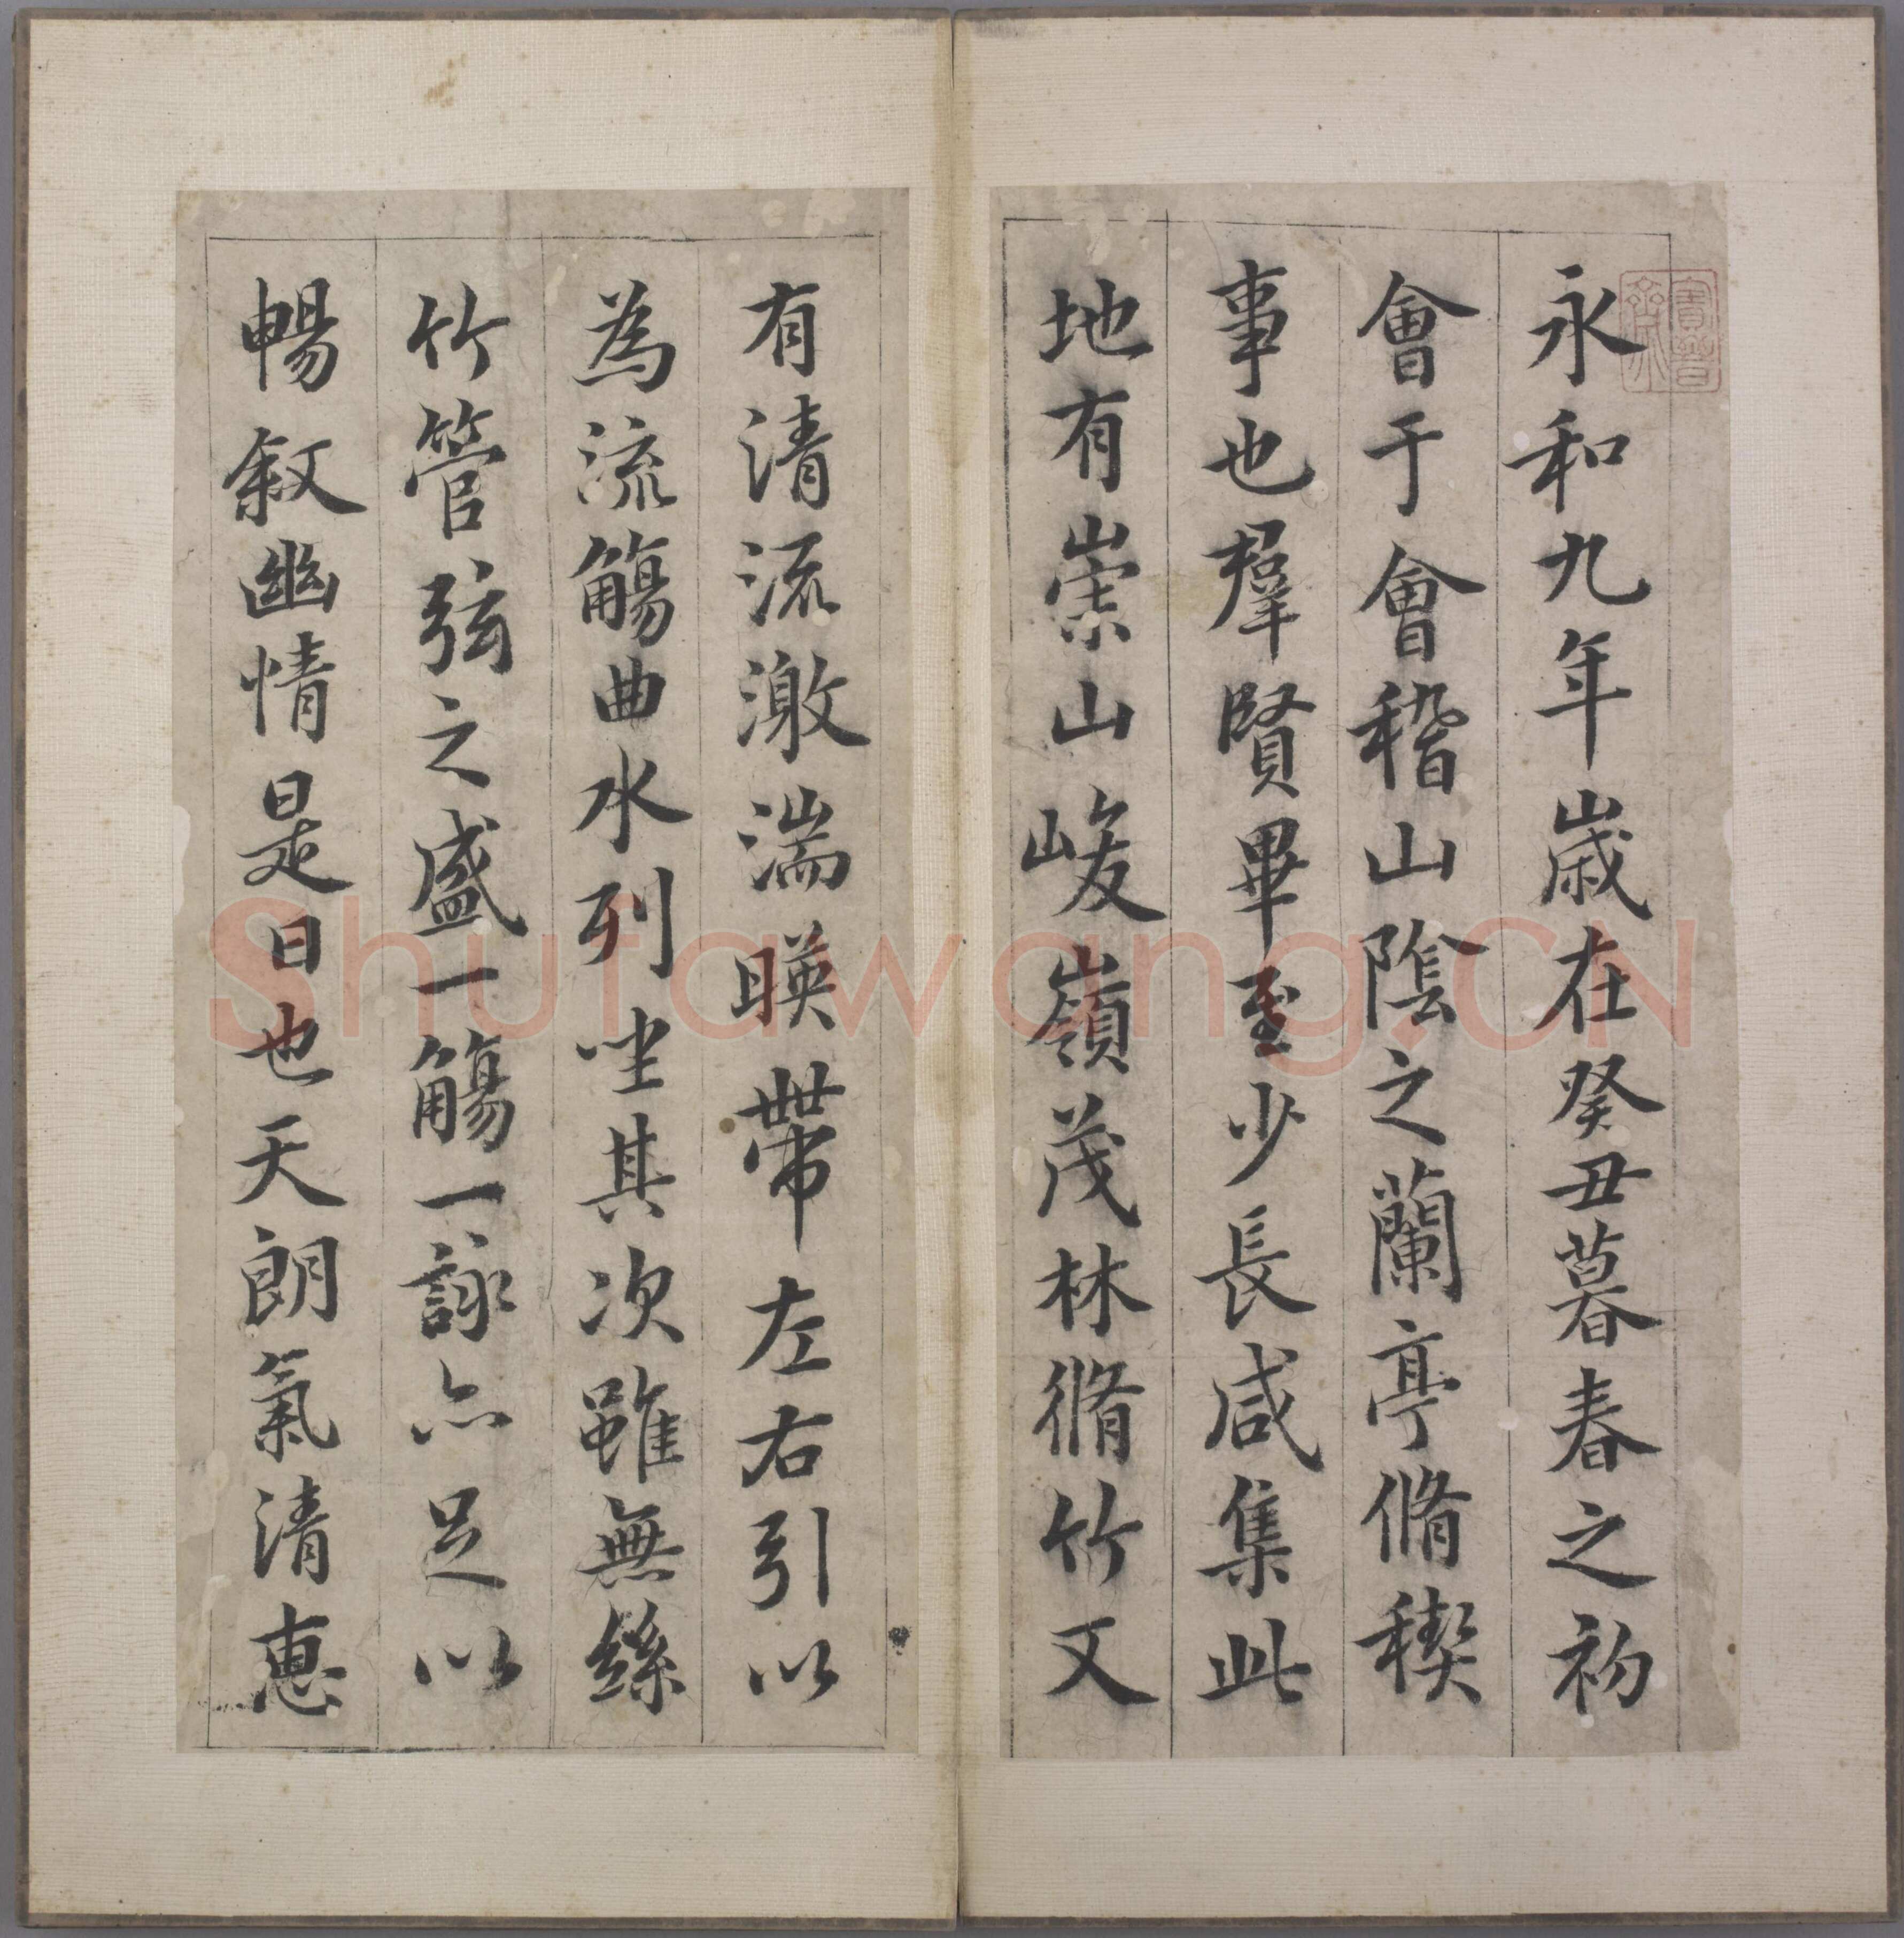 永和九年歲在癸丑暮春之初
會于會稽山陰之蘭亭脩稧
事也羣賢畢至少長咸集此
地有崇山峻嶺茂林脩竹又
有清流激湍暎帶左右引以
為流觴曲水列坐其次雖無絲
竹管弦之盛一觴一詠亦足以
暢敘幽情是日也天朗氣清惠
寶晉齋
Shufawang.CN